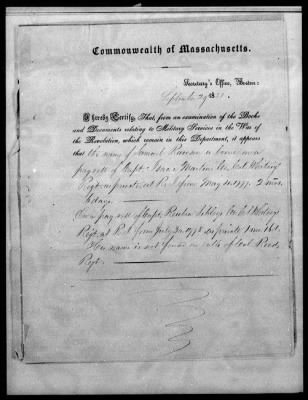 Commonwealth of Massachusetts.
Secretary's Office, Boston:
18
I hereby Certify, That, from an examination of the Books
and Documents relating to Military Services in the War of
the Revolution, which remain in this Department, it appears
that the name of Samuel is borne on a
pay roll of Capt. Isaac Martin's Co. Col.
Regt. as private at R.I. from May 10. 1777. 2 mos.
days.
On a pay roll of Capt. Reuben Co. Col.
Regt. at R.I. from July 1777 as private 1 mo. 16 d.
His name is not found on rolls of Col.
Regt.